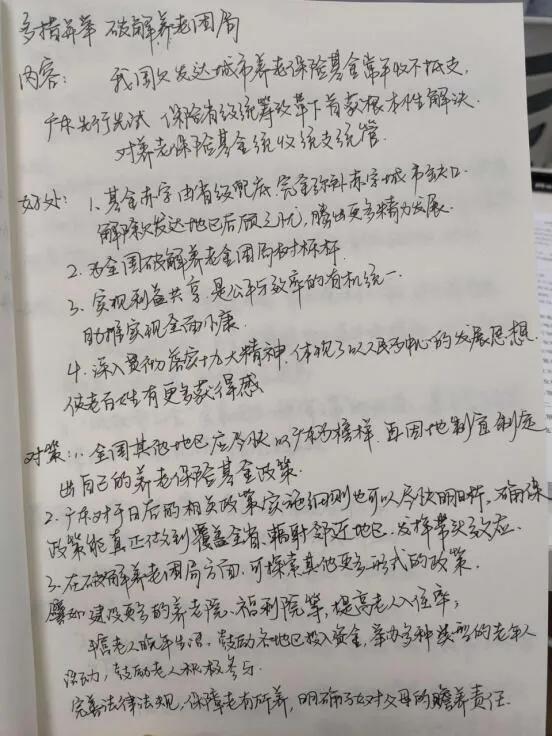 多措并举 破解养老困局
内容： 我国欠发达城市养老保险基金常年收不抵支,
广东先行先试 保险省级统筹改革下首获根本性解决.
对养老保险基金统收统支统管.
好处： 1. 基金赤字由省级配底.完全弥补赤字城市缺口.
解除欠发达地区后顾之忧, 腾出更多精力发展.
2. 为全国破解养老金困局树标杆.
3. 实现利益共享.是公平与效率的有机统一.
助推实现全面小康.
4. 深入贯彻落实十九大精神.体现了以人民为中心的发展思想.
使老百姓有更多获得感
对策：1. 全国其他地区应尽快以广东为榜样 再因地制宜制定
出自己的养老保险基金政策.
2. 广东对于日后的相关政策实施细则也可以尽快明晰.确保
政策能真正做到覆盖全省、辐射邻近地区.发挥带头效应.
3. 在破解养老困局方面.可探索其他更多形式的政策.
譬如建设更多的养老院、福利院等, 提高老人入住率;
丰富老人晚年生活. 鼓励各地区投入资金, 举办多种类型的老年人
活动, 鼓励老人积极参与.
完善法律法规, 保障老有所养, 明确子女对父母的赡养责任.